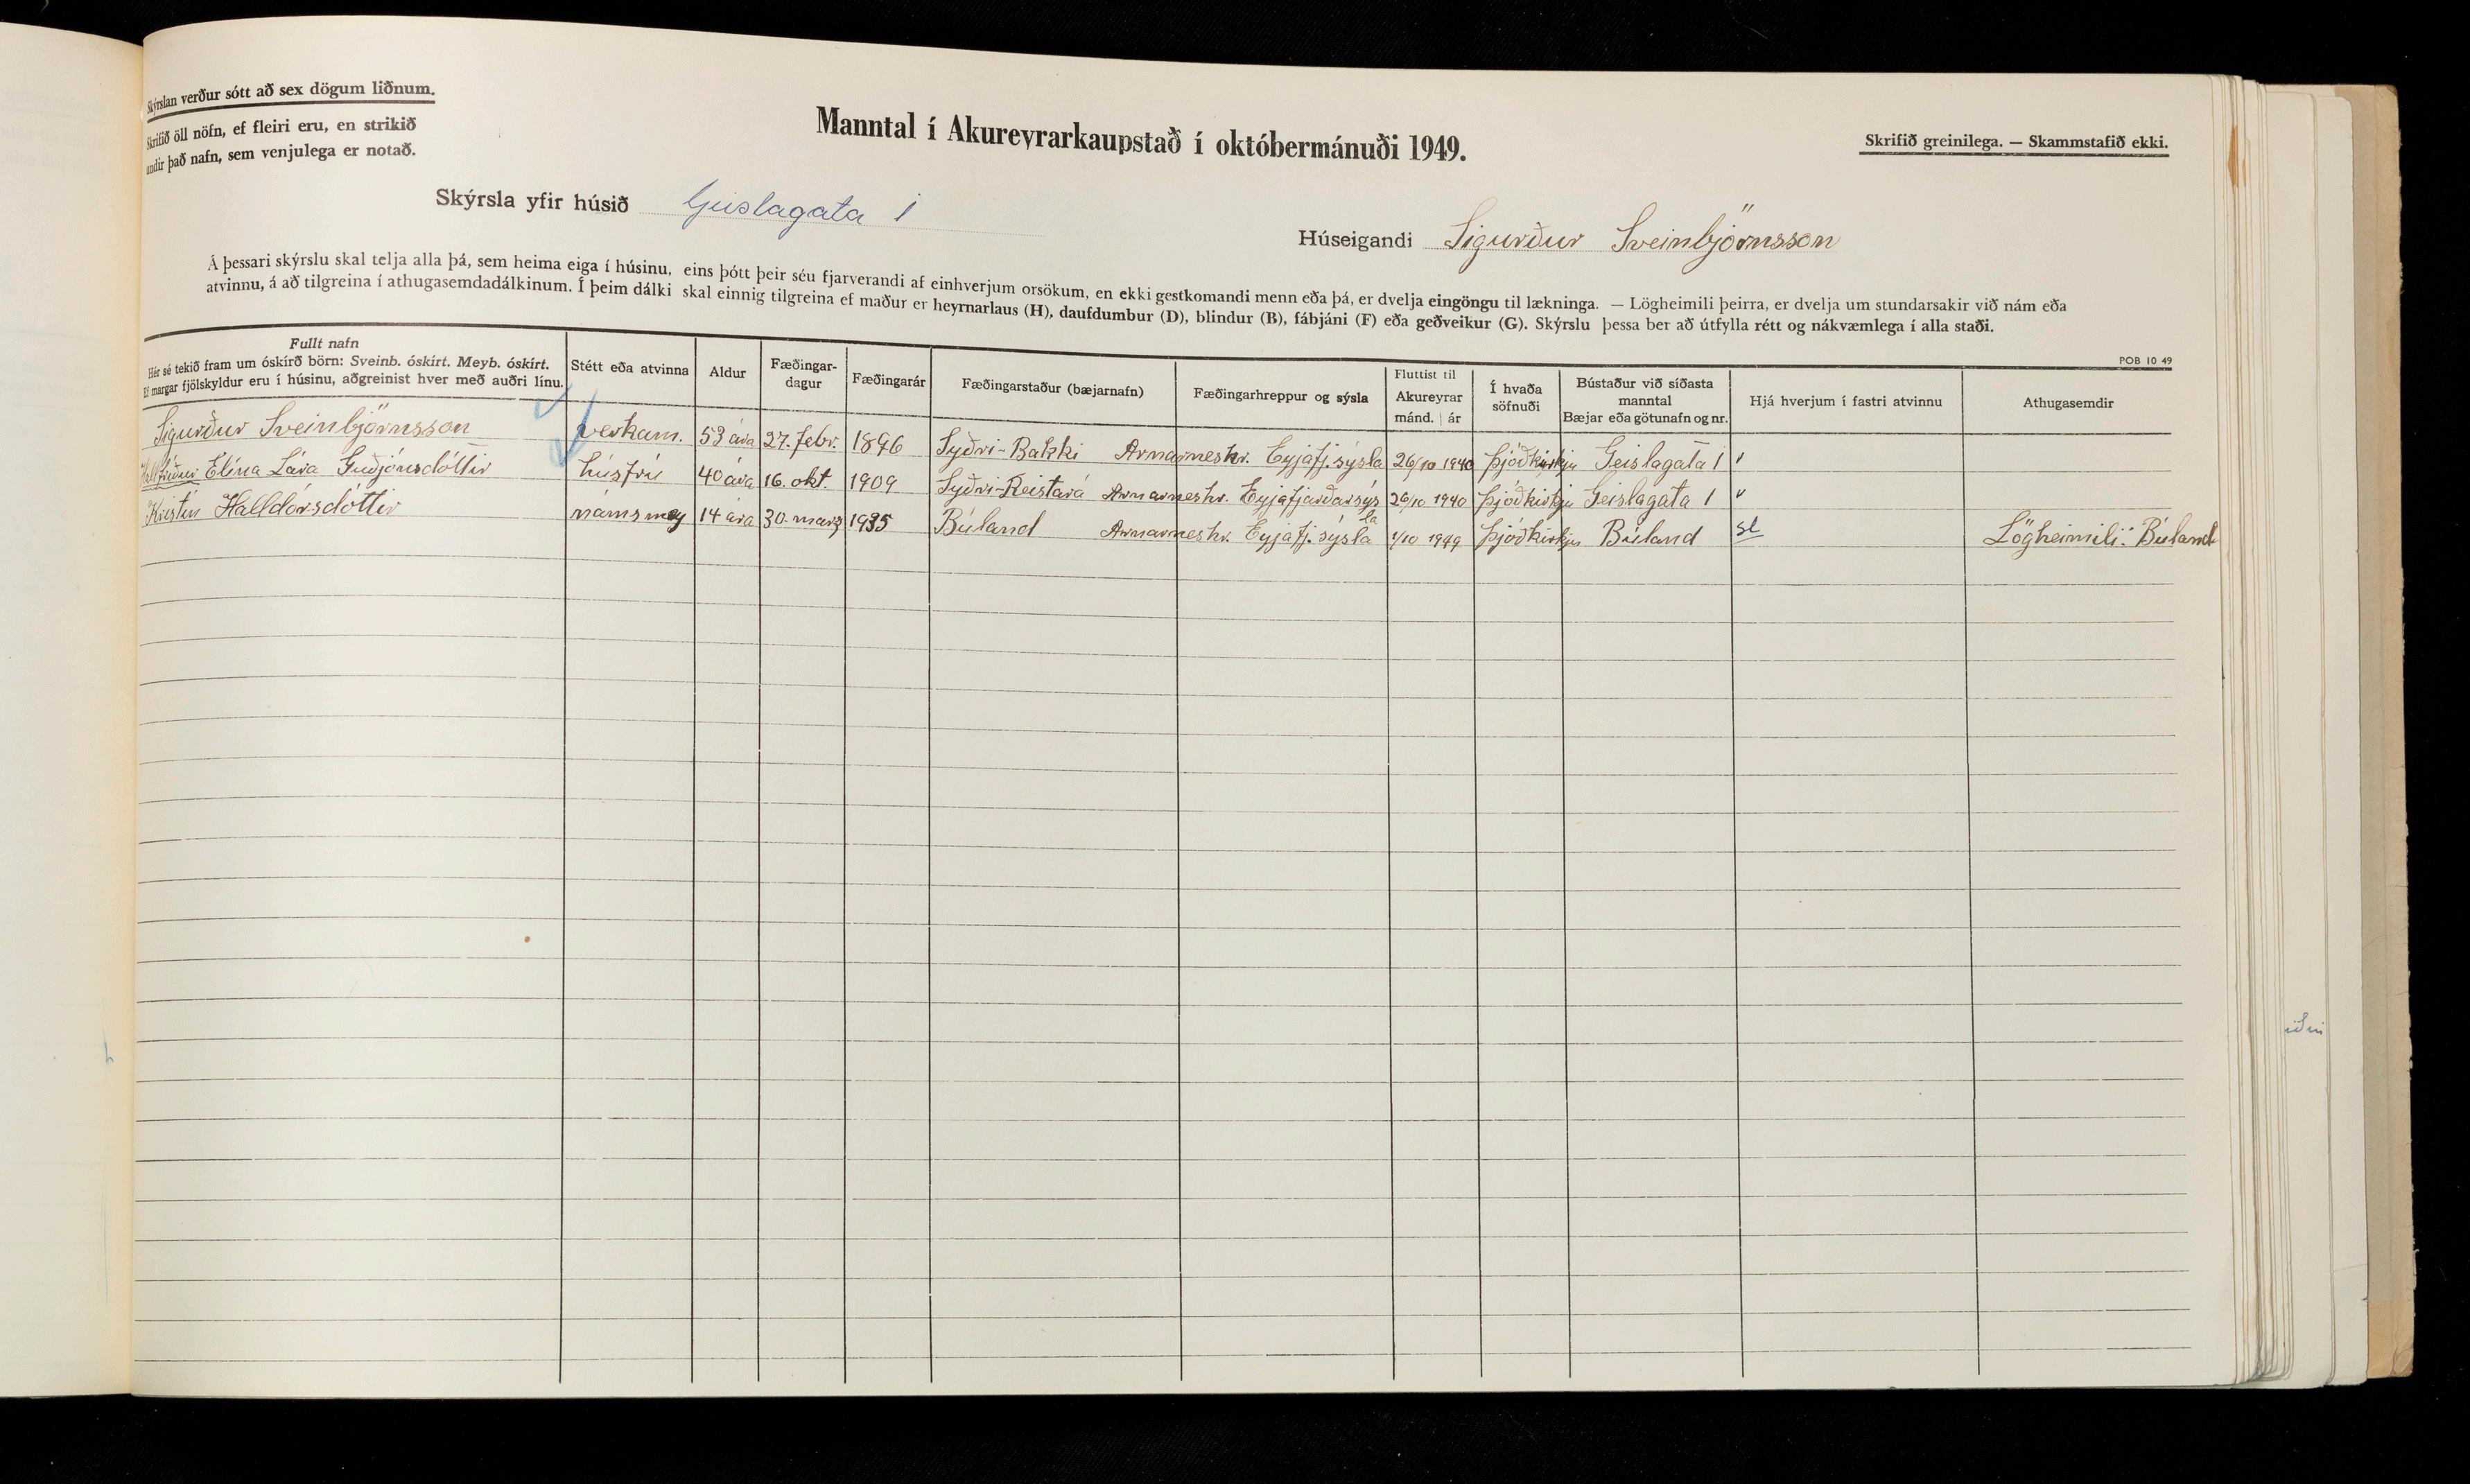 Skýrslan verður sótt að sex dögum liðnum.
Skrifið öll nöfn, ef fleiri eru, en strikið
undir það nafn, sem venjulega er notað.
Manntal í Akureyrarkaupstað í októbermánuði 1949.
Skrifið greinilega. — Skammstafið ekki.
Skýrsla yfir húsið Geislagata 1
Húseigandi Sigurður Sveinbjörnsson
Á þessari skýrslu skal telja alla þá, sem heima eiga í húsinu, eins þótt þeir séu fjarverandi af einhverjum orsökum, en ekki gestkomandi menn eða þá, er dvelja eingöngu til lækninga. — Lögheimili þeirra, er dvelja um stundarsakir við nám eða
atvinnu, á að tilgreina í athugasemdadálkinum. Í þeim dálki skal einnig tilgreina ef maður er heyrnarlaus (H), daufdumbur (D), blindur (B), fábjáni (F) eða geðveikur (G). Skýrslu þessa ber að útfylla rétt og nákvæmlega í alla staði.
POB 10 49
Fullt nafn
Hér sé tekið fram um óskírð börn: Sveinb. óskírt. Meyb. óskírt.
Ef margar fjölskyldur eru í húsinu, aðgreinist hver með auðri línu.
Stétt eða atvinna
Aldur
Fæðingar-
dagur
Fæðingarár
Fæðingarstaður (bæjarnafn)
Fæðingarhreppur og sýsla
Fluttist til
Akureyrar
mánd. | ár
Í hvaða
söfnuði
Bústaður við síðasta
manntal
Bæjar eða götunafn og nr.
Hjá hverjum í fastri atvinnu
Athugasemdir
Sigurður Sveinbjörnsson verkam. 53 ára 27. febr. 1896 Syðri-Bakki Arnarneshr. Eyjafj.sýsla 26/10 1940 Þjóðkirkju Geislagata 1
Hallfríður Elína Lára Guðjónsdóttir húsfrú 40 ára 16. okt. 1909 Syðri-Reistará Arnarneshr. Eyjafjarðarsýsla 26/10 1940 Þjóðkirkju Geislagata 1
Kristín Halldórsdóttir námsmey 14 ára 30. marz 1935 Búland Arnarneshr. Eyjafj.sýsla 1/10 1949 Þjóðkirkju Búland sl Lögheimili: Búland